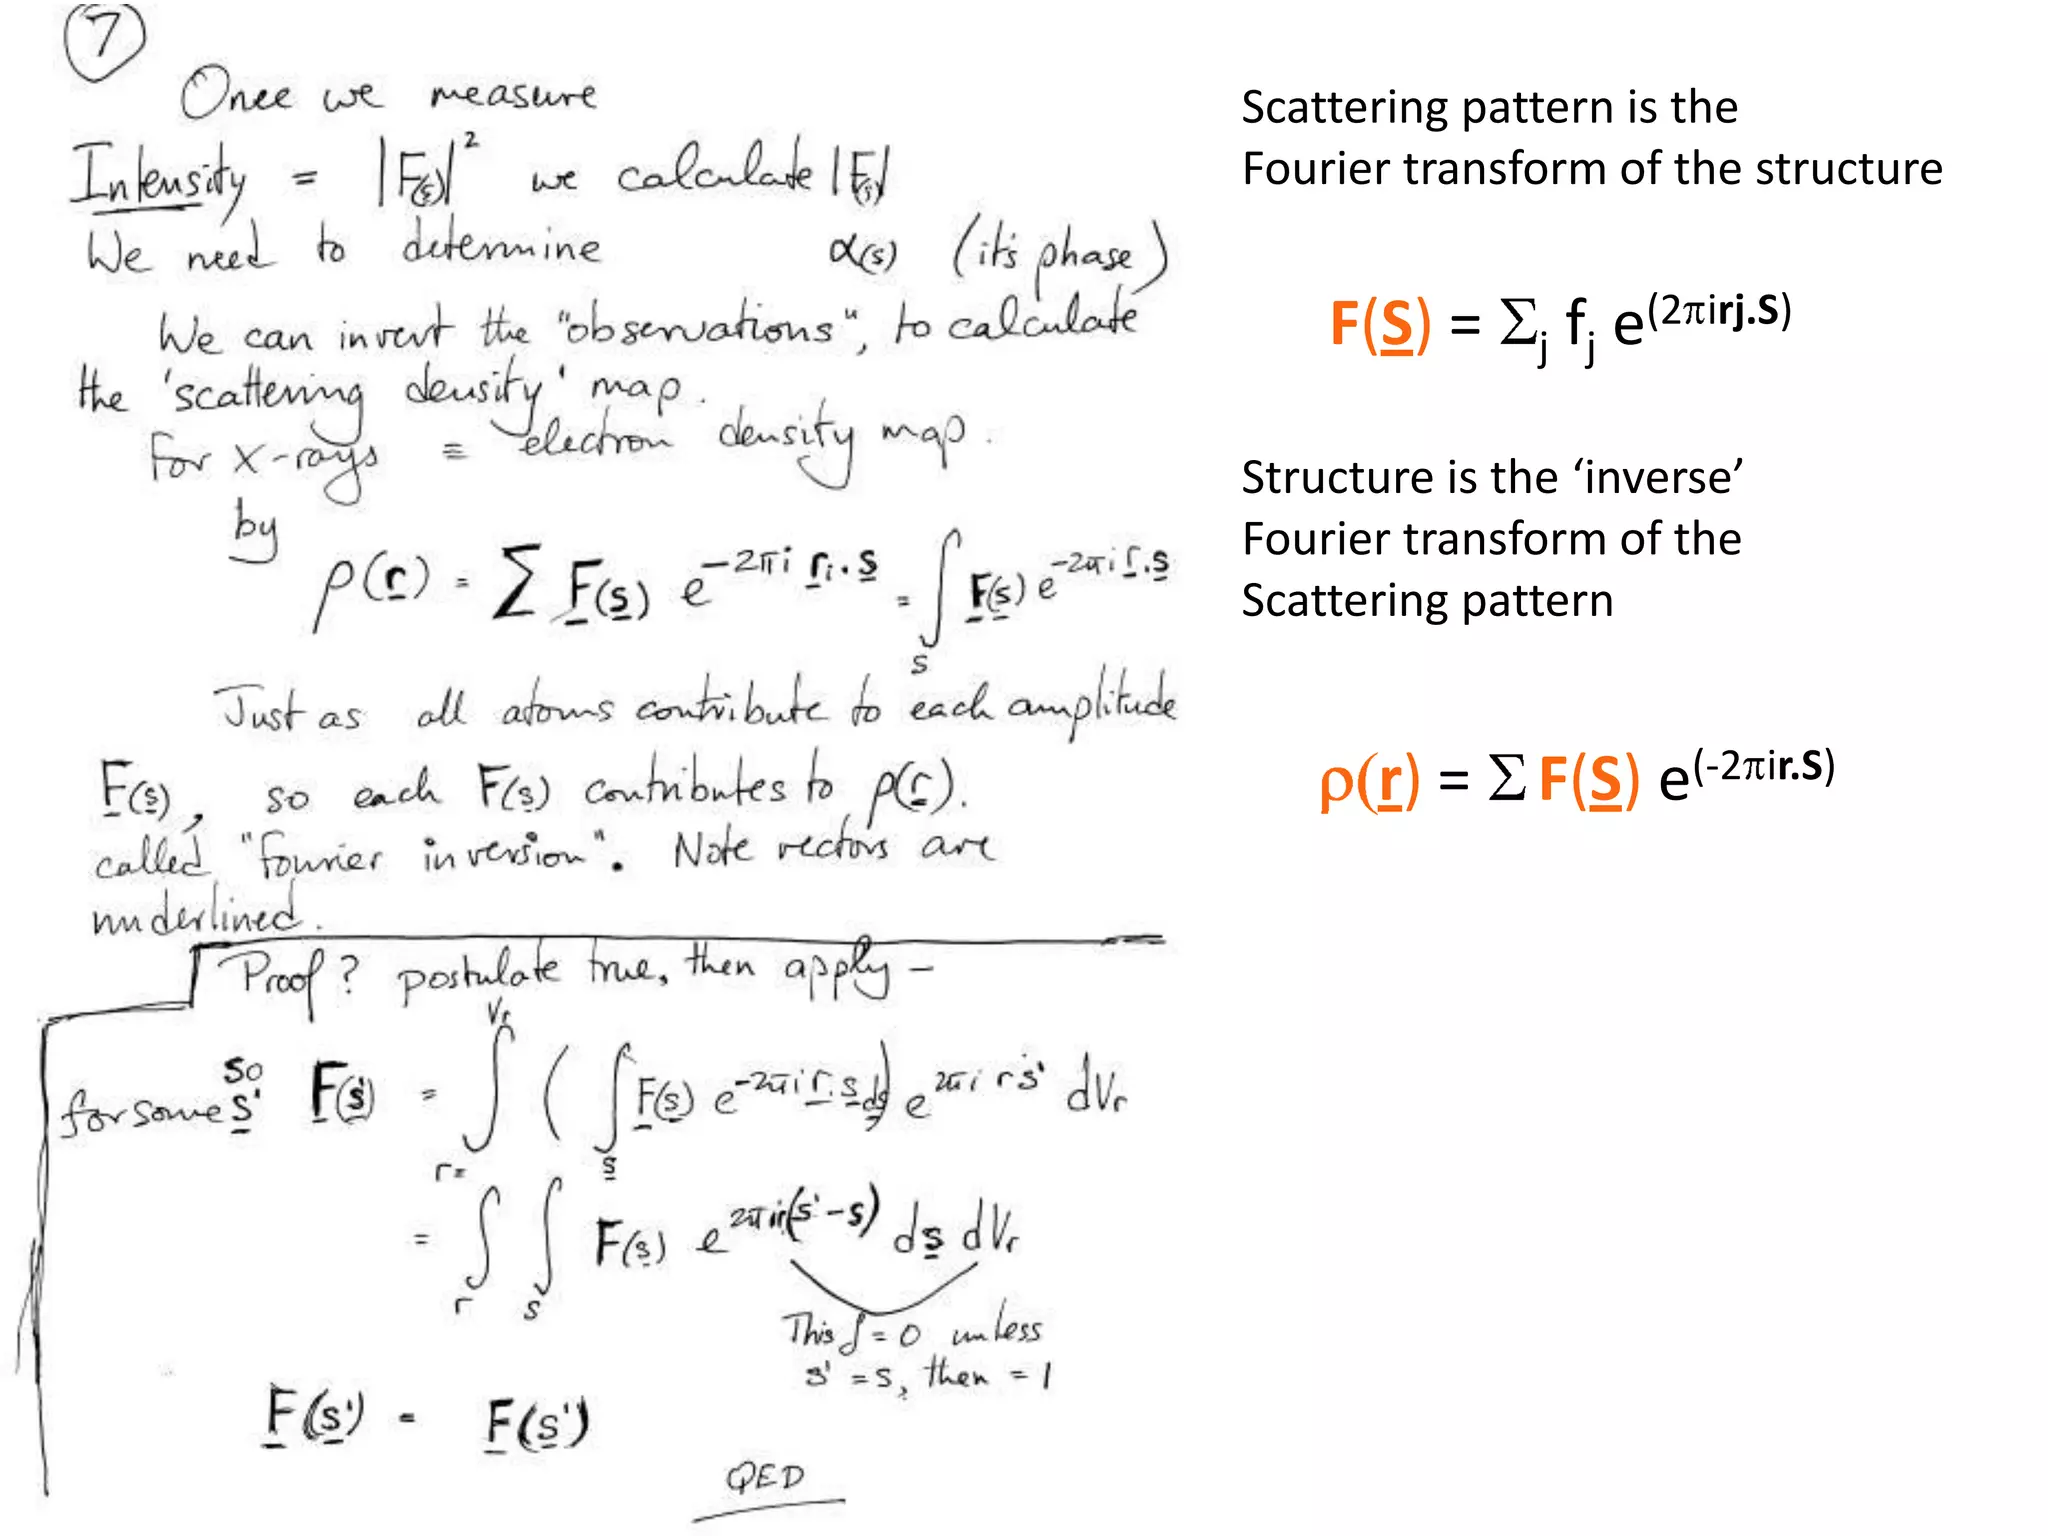 7
Once we measure
Intensity = |F(s)|² we calculate |F(s)|
We need to determine α(s) (it's phase)
We can invert the "observations", to calculate
the 'scattering density' map.
For X-rays ≡ electron density map.
by
ρ(r) = Σ F(s) e^-2πi ri.s = ∫s F(s) e^-2πi r.s
Just as all atoms contribute to each amplitude
F(s), so each F(s) contributes to ρ(r).
called "fourier inversion". Note vectors are
underlined.
Proof? postulate true, then apply –
so
for some s' F(s') = ∫r=^Vr ( ∫s F(s) e^-2πi r.s ds) e^2πi r s' dVr
= ∫r ∫s F(s) e^2πir(s'-s) ds dVr
This ∫ = 0 unless
s' = s, then = 1
F(s') = F(s')
QED
Scattering pattern is the
Fourier transform of the structure
F(S) = Σj fj e(2πirj.S)
Structure is the ‘inverse’
Fourier transform of the
Scattering pattern
ρ(r) = Σ F(S) e(-2πir.S)